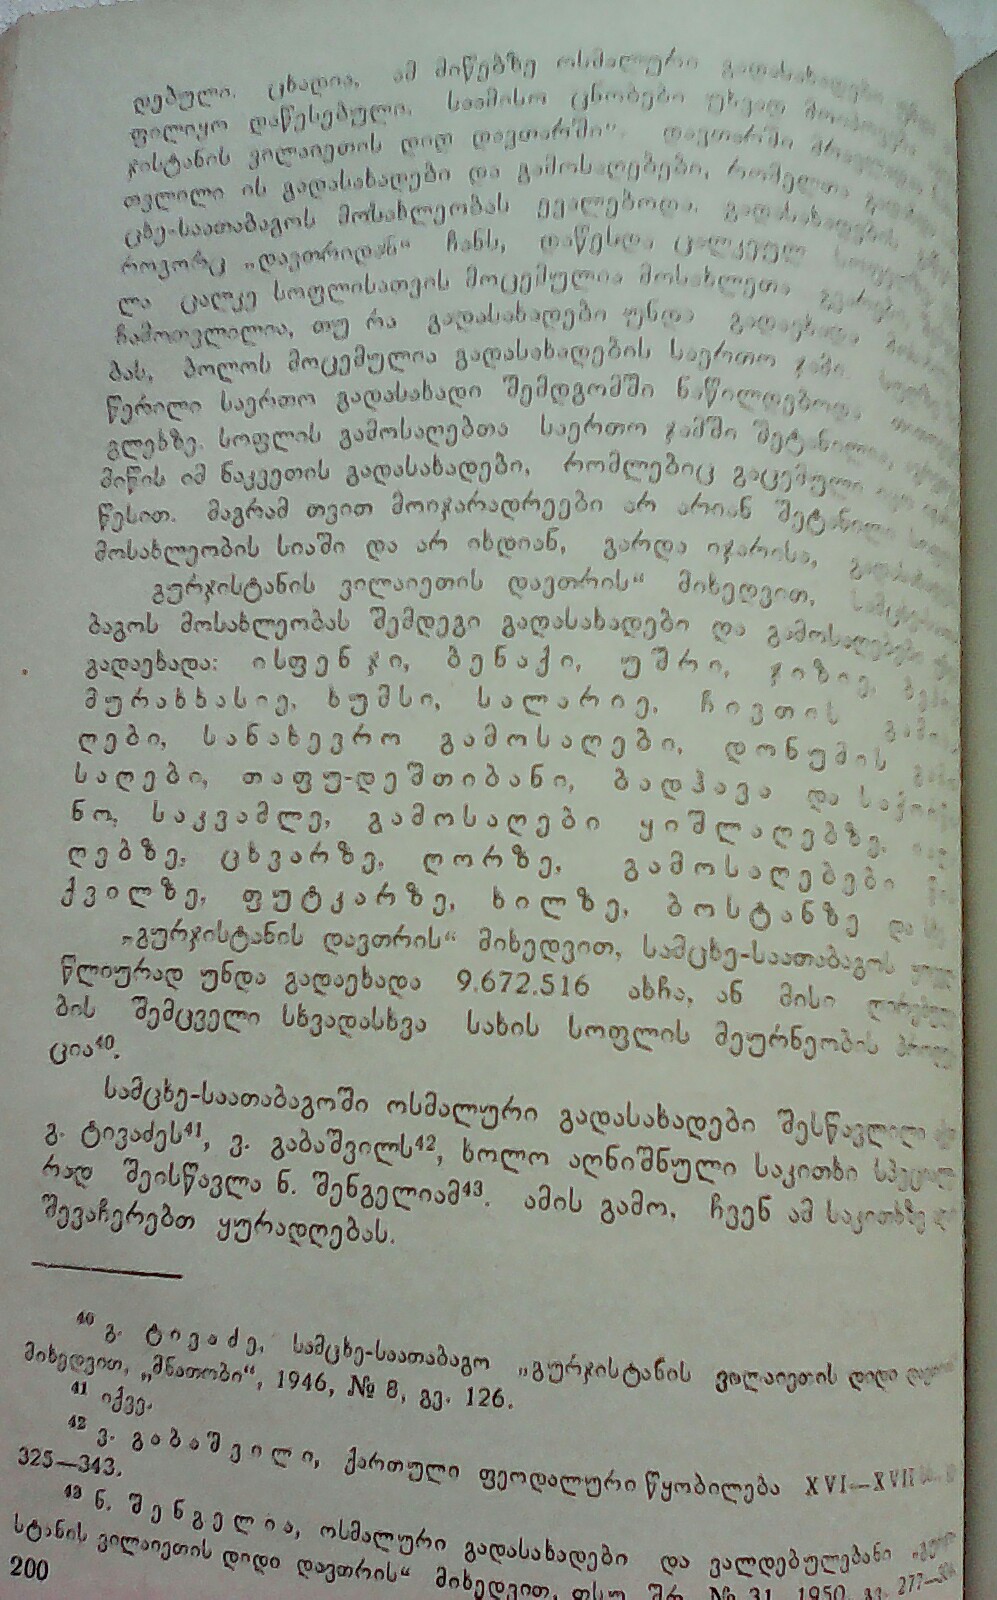 დებული. ცხადია, ამ მიწებზე ოსმალური გადასახადები
ფილიყო დაწესებული. საამისო ცნობები უხვად მოიპოვება
ჯისტანის ვილაიეთის დიდ დავთარში". დავთარში
თვლილი ის გადასახადები და გამოსაღებები, რომელთა გადახდა
ცხე-საათაბაგოს მოსახლეობას ევალებოდა. გადასახადების
როგორც „დავთრიდან“ ჩანს, დაწესდა ცალკეულ
ლა ცალკე სოფლისათვის მოცემულია მოსახლეთა გვარები,
ჩამოთვლილია, თუ რა გადასახადები უნდა გადაეხადა
ბას, ბოლოს მოცემულია გადასახადების საერთო ჯამი.
წერილი საერთო გადასახადი შემდგომში ნაწილდებოდა
გლეხზე. სოფლის გამოსაღებთა საერთო ჯამში შეტანილია,
მიწის იმ ნაკვეთის გადასახადები, რომლებიც გაცემული იყო
წესით. მაგრამ თვით მოიჯარადრეები არ არიან შეტანილი
მოსახლეობის სიაში და არ იხდიან, გარდა იჯარისა,
გურჯისტანის ვილაიეთის დავთრის“ მიხედვით,
ბაგოს მოსახლეობას შემდეგი გადასახადები და გამოსაღებები
გადაეხადა: ისფენჯი, ბენაქი, უშრი, ჯიზია,
მურახხასიე, ხუმსი, სალარიე, ჩივთის
ღები, სანახევრო გამოსაღები, დონუმის
საღები, თაფუ-დეშთიბანი, ბადჰავა და
ნო, საკვამლე, გამოსაღები ყიშლაღებზე,
ღებზე, ცხვარზე, ღორზე, გამოსაღებები
ქვილზე, ფუტკარზე, ხილზე, ბოსტანზე და
„გურჯისტანის დავთრის“ მიხედვით, სამცხე-საათაბაგოს
წლიურად უნდა გადაეხადა 9.672.516 ახჩა, ან მისი
ბის შემცველი სხვადასხვა სახის სოფლის მეურნეობის
ცია⁴⁰.
სამცხე-საათაბაგოში ოსმალური გადასახადები შესწავლილი
გ. ტივაძეს⁴¹, ვ. გაბაშვილს⁴², ხოლო აღნიშნული საკითხი
რად შეისწავლა ნ. შენგელიამ⁴³. ამის გამო, ჩვენ ამ საკითხზე
შევაჩერებთ ყურადღებას.
⁴⁰ გ. ტივაძე, სამცხე-საათაბაგო „გურჯისტანის ვილაიეთის დიდი
მიხედვით, „მნათობი“, 1946, № 8, გვ. 126.
⁴¹ იქვე.
⁴² ვ. გაბაშვილი, ქართული ფეოდალური წყობილება XVI—XVII
325—343.
⁴³ ნ. შენგელია, ოსმალური გადასახადები და ვალდებულებანი
სტანის ვილაიეთის დიდი დავთრის“ მიხედვით, თსუ შრ. № 31, 1950, გვ.
200